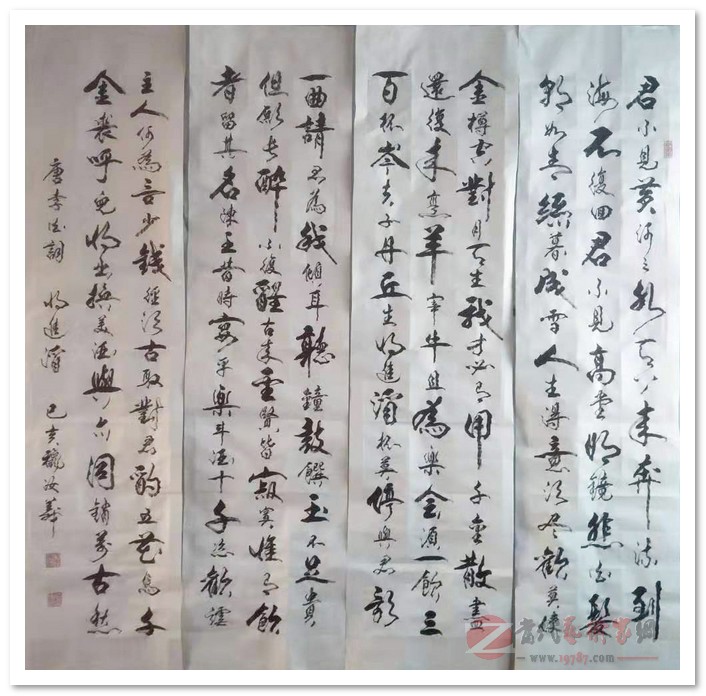 君不見黄河之水天上来奔流到
海不復回君不見高堂明鏡悲白髮
朝如青絲暮成雪人生得意須盡歡莫使
金樽空對月天生我才必有用千金散盡
還復來烹羊宰牛且為樂會須一飲三
百杯岑夫子丹丘生将進酒杯莫停與君歌
一曲請君為我傾耳聽鐘鼓饌玉不足貴
但願長醉不復醒古來聖賢皆寂寞惟有飲
者留其名陳王昔時宴平樂斗酒十千恣歡謔
主人何為言少錢徑須古取對君酌五花馬千
金裘呼兒将出換美酒與尔同銷萬古愁
唐李白詞 将進酒 己亥 汝
当代艺术家网
www.19787.com